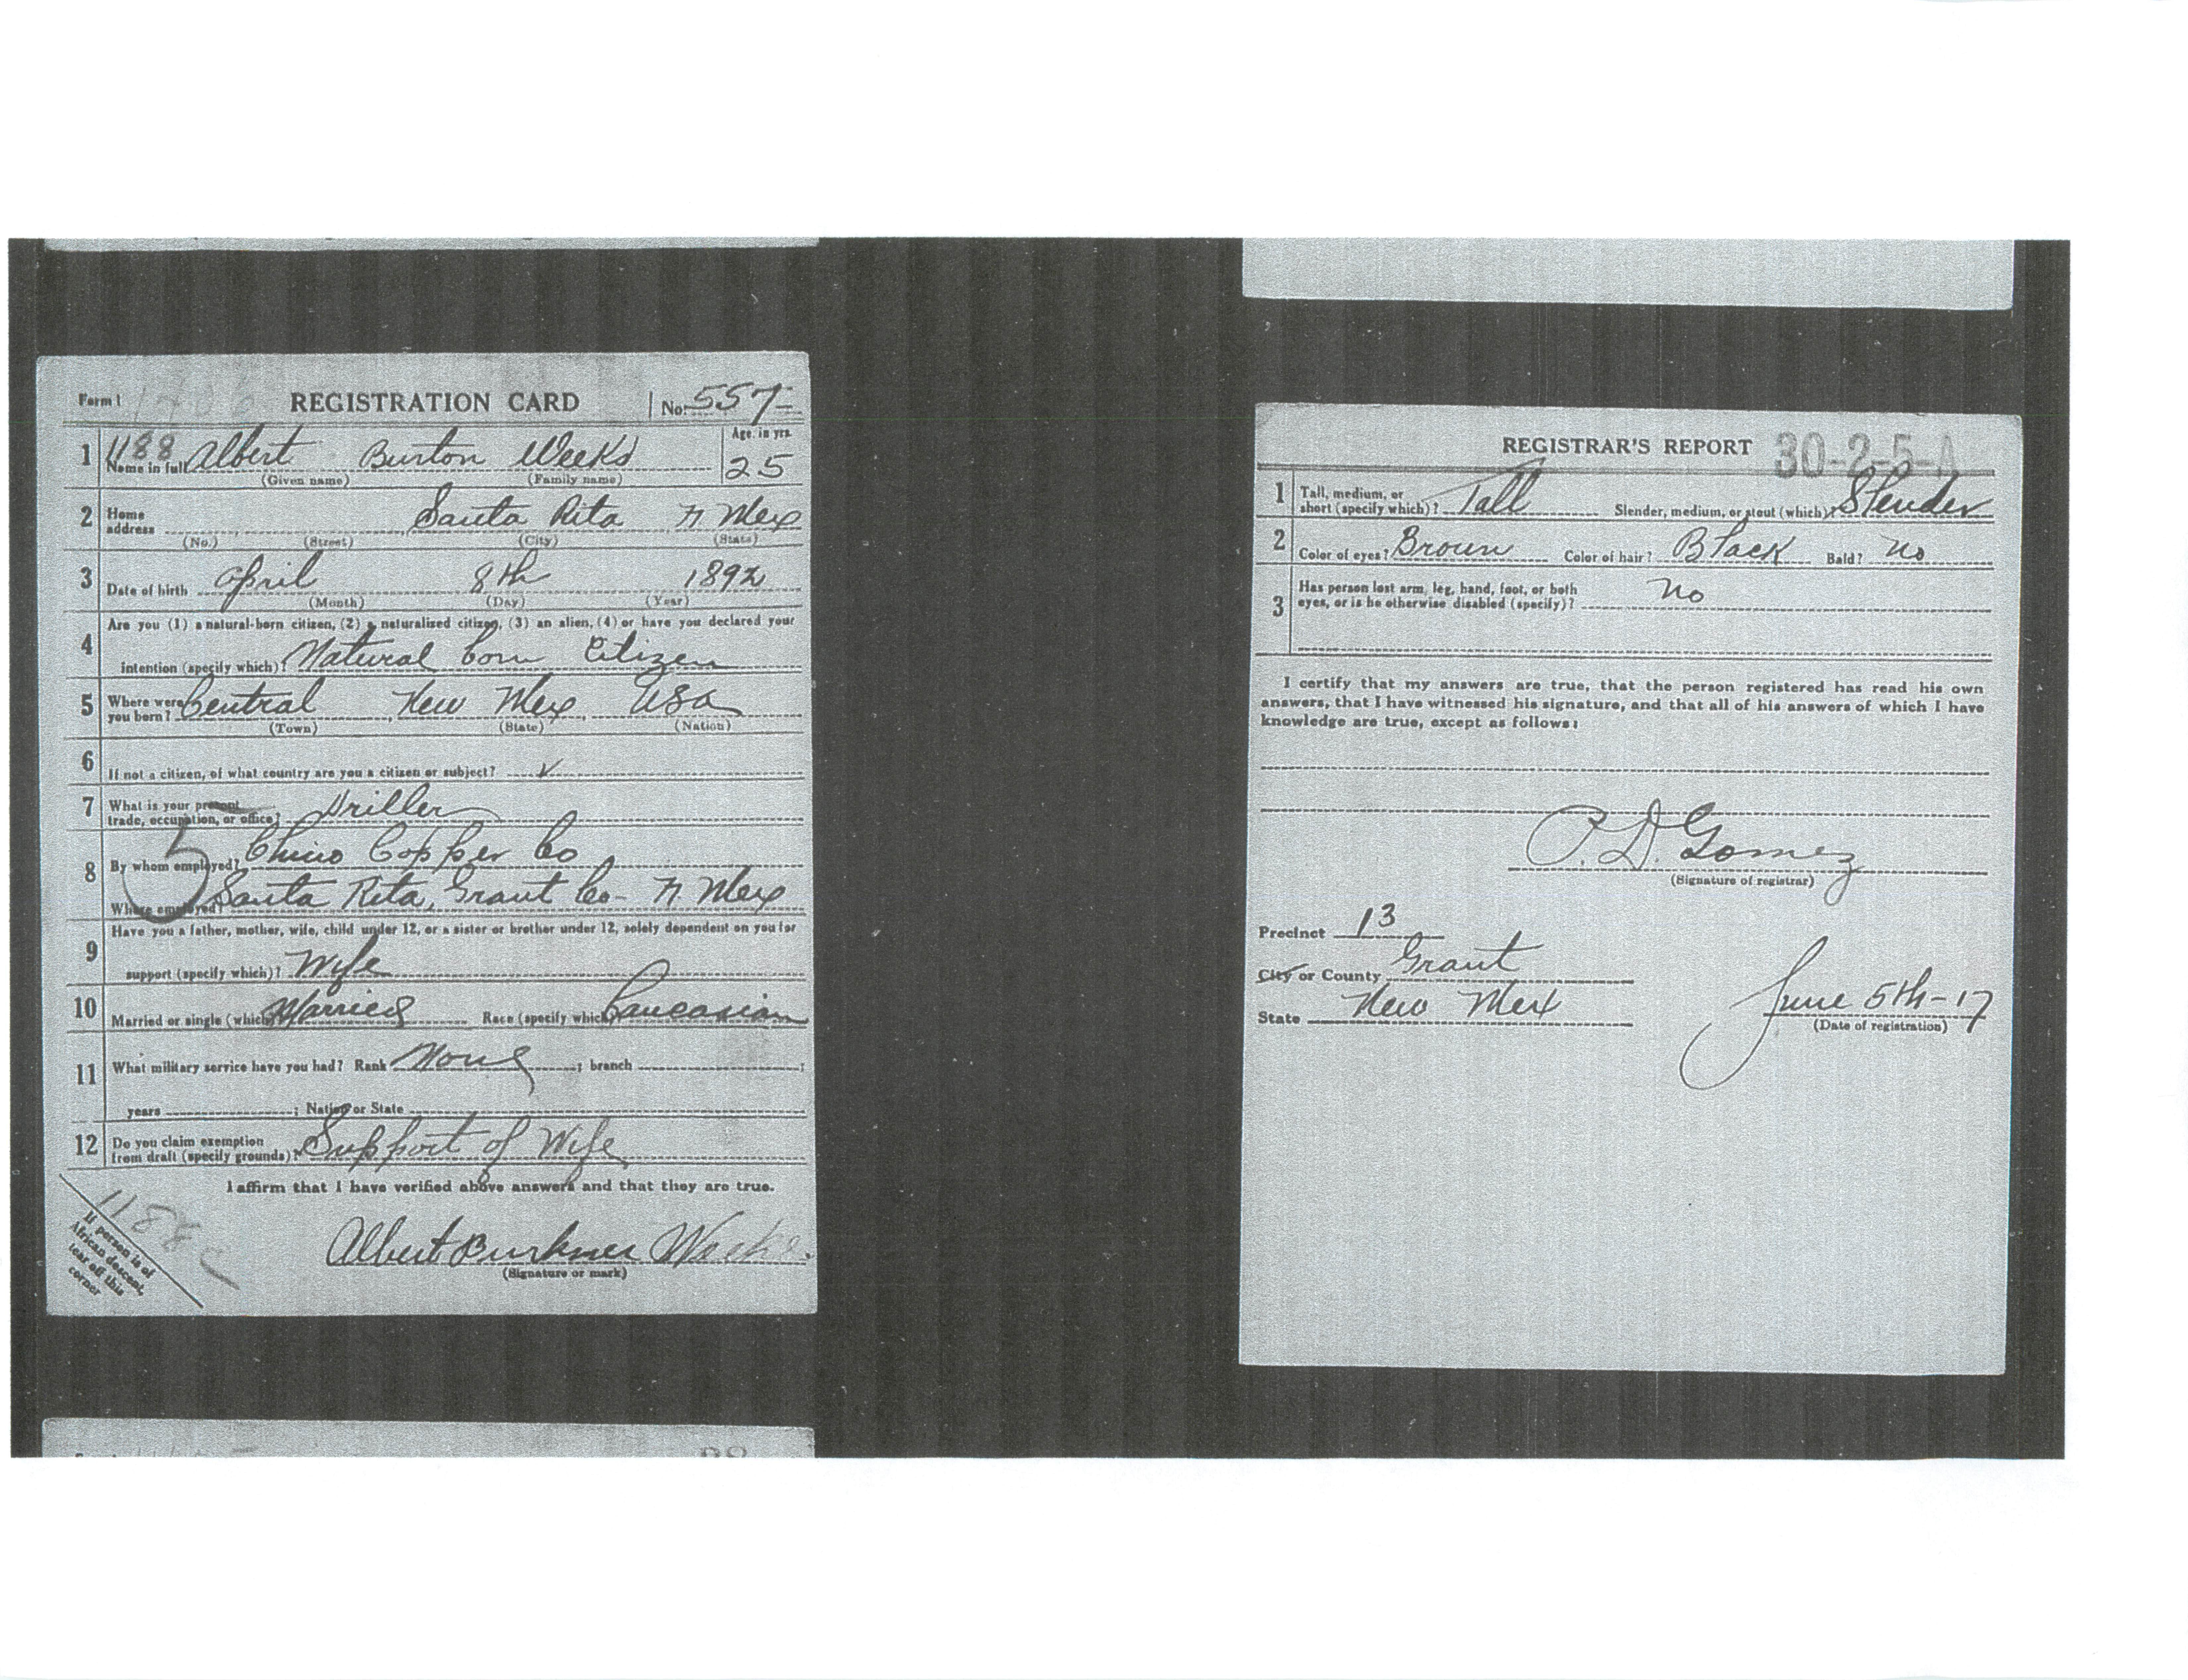 Form 1 REGISTRATION CARD No. 557-
1 1188 Name in full Albert Burton Weeks Age, in yrs. 25
(Given name) (Family name)
2 Home address Santa Rita N Mex
(No.) (Street) (City) (State)
3 Date of birth April 8th 1892
(Month) (Day) (Year)
4 Are you (1) a natural-born citizen, (2) a naturalized citizen, (3) an alien, (4) or have you declared your
intention (specify which)? Natural born Citizen
5 Where were you born? Central New Mex USA
(Town) (State) (Nation)
6 If not a citizen, of what country are you a citizen or subject?
7 What is your present
trade, occupation, or office? Driller
8 By whom employed? Chino Copper Co
Where employed? Santa Rita, Grant Co- N Mex
9 Have you a father, mother, wife, child under 12, or a sister or brother under 12, solely dependent on you for
support (specify which)? Wife
10 Married or single (which)? Married Race (specify which)? Caucasian
11 What military service have you had? Rank None ; branch ;
years ; Nation or State
12 Do you claim exemption
from draft (specify grounds)? Support of Wife
I affirm that I have verified above answers and that they are true.
Albert
(Signature or mark)
If person is of
African descent,
tear off this
corner
REGISTRAR'S REPORT 30-2-5-A
1 Tall, medium, or
short (specify which)? Tall Slender, medium, or stout (which)? Slender
2 Color of eyes? Brown Color of hair? Black Bald? No
3 Has person lost arm, leg, hand, foot, or both
eyes, or is he otherwise disabled (specify)? No
I certify that my answers are true, that the person registered has read his own
answers, that I have witnessed his signature, and that all of his answers of which I have
knowledge are true, except as follows:
P. D. Gomez
(Signature of registrar)
Precinct 13
City or County Grant
State New Mex
June 5th-17
(Date of registration)